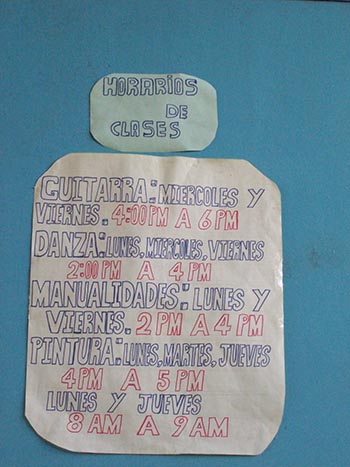 HORARIOS
DE
CLASES
GUITARRA: MIERCOLES Y
VIERNES. 4:00 PM A 6 PM
DANZA: LUNES, MIERCOLES, VIERNES
2:00 PM A 4 PM
MANUALIDADES: LUNES Y
VIERNES. 2 PM A 4 PM
PINTURA: LUNES, MARTES, JUEVES
4 PM A 5 PM
LUNES Y JUEVES
8 AM A 9 AM